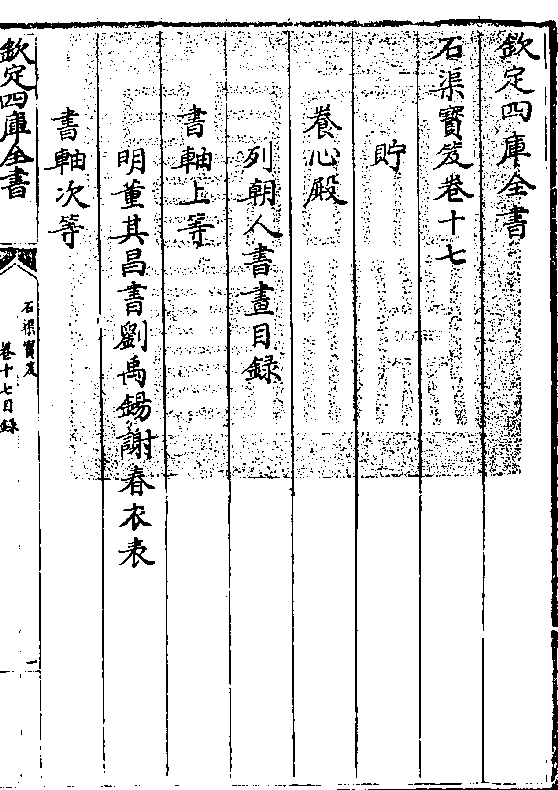 欽定四庫全書
石渠寶笈卷十七
貯
養心殿
列朝人書畫目錄
書軸上等
明董其昌書劉禹錫謝春衣表
書軸次等
欽定四庫全書
石渠寶笈
卷十七目錄